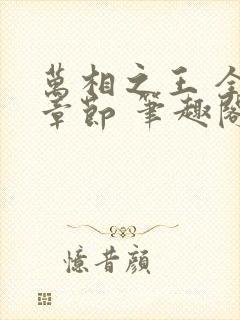 萬相之王 全
章節 筆趣閣
憶昔顔